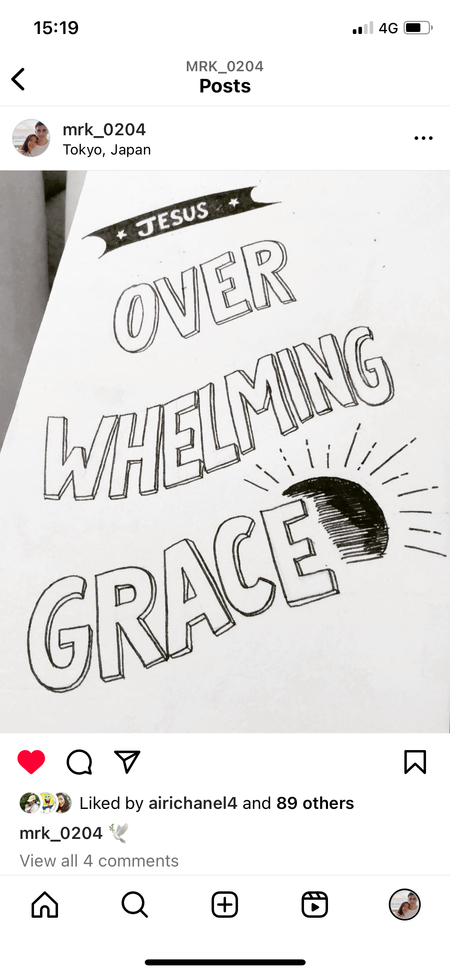 15:19
4G
MRK_0204
Posts
mrk_0204
Tokyo, Japan
JESUS
OVER
WHELMING
GRACE
Liked by airichanel4 and 89 others
mrk_0204 🕊️
View all 4 comments